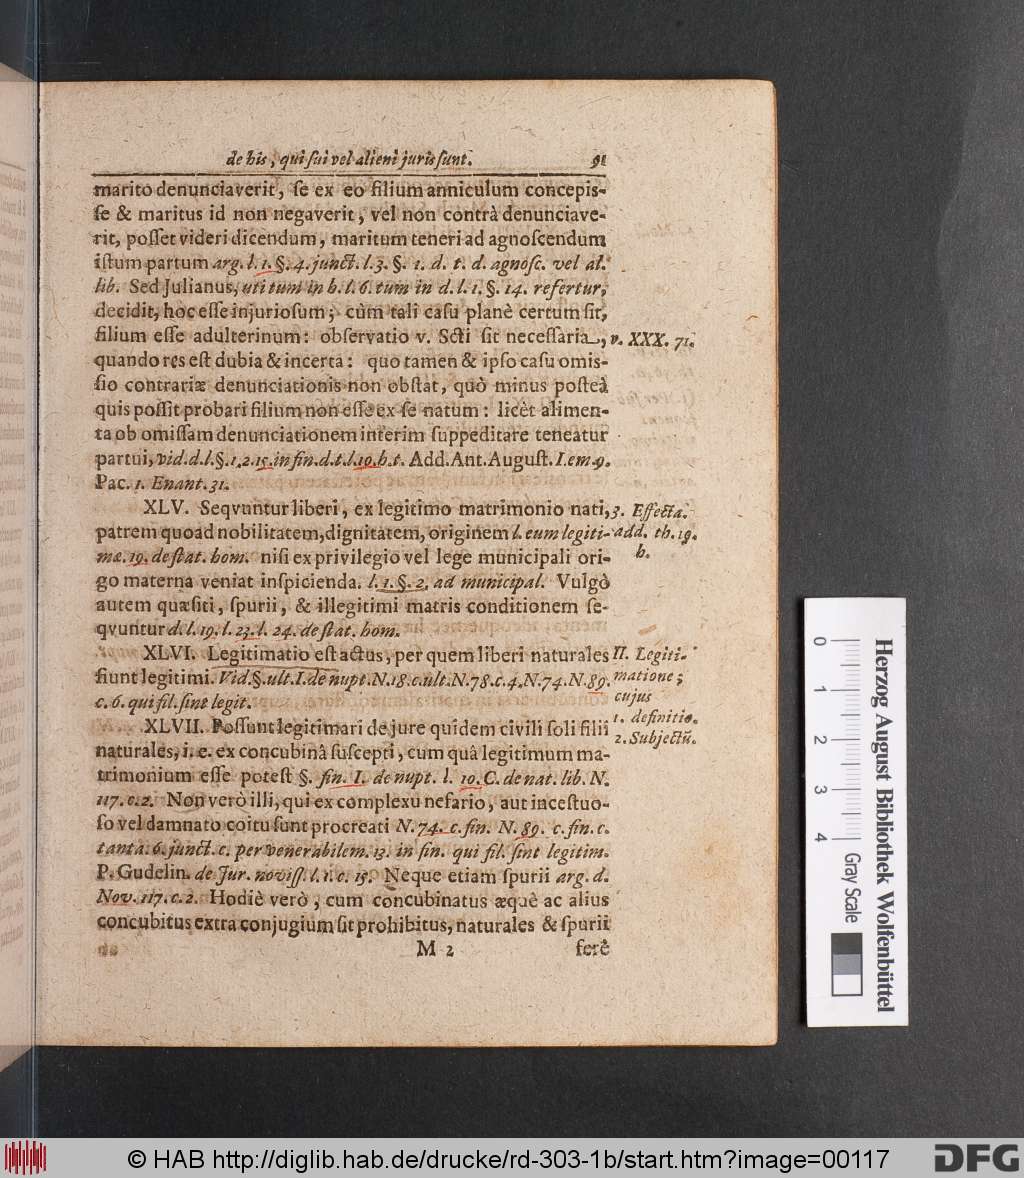 de his, qui sui vel alieni juris sunt. 91
marito denunciaverit, ſe ex eo filium anniculum concepiſ-
ſe & maritus id non negaverit, vel non contrà denunciave-
rit, poſſet videri dicendum, maritum teneri ad agnoſcendum
iſtum partum arg. l. 1. §. 4. junct. l. 3. §. 1. d. t. d. agnoſc. vel al.
lib. Sed Julianus, uti tum in h. l. 6. tum in d. l. 1. §. 14. refertur,
decidit, hoc eſſe injurioſum; cùm tali caſu planè certum ſit,
filium eſſe adulterinum: obſervatio v. Scti ſit neceſſaria, v. XXX. 71.
quando res eſt dubia & incerta: quo tamen & ipſo caſu omiſ-
ſio contrariæ denunciationis non obſtat, quò minus poſteà
quis poſſit probari filium non eſſe ex ſe natum: licèt alimen-
ta ob omiſſam denunciationem interim ſuppeditare teneatur
partui, vid. d. l. §. 1. 2. 15. in fin. d. t. l. 19. h. t. Add. Ant. Auguſt. I. em. 9.
Pac. 1. Enant. 31.
XLV. Seqvuntur liberi, ex legitimo matrimonio nati, 3. Effecta.
patrem quoad nobilitatem, dignitatem, originem l. eum legiti- add. th. 19.
mæ. 19. de ſtat. hom. niſi ex privilegio vel lege municipali ori- h.
go materna veniat inſpicienda. l. 1. §. 2. ad municipal. Vulgò
autem quæſiti, ſpurii, & illegitimi matris conditionem ſe-
qvuntur d. l. 19. l. 23. l. 24. de ſtat. hom.
XLVI. Legitimatio eſt actus, per quem liberi naturales II. Legiti-
fiunt legitimi. Vid. §. ult. I. de nupt. N. 18. c. ult. N. 78. c. 4. N. 74. N. 89. matione;
c. 6. qui fil. ſint legit. cujus
XLVII. Poſſunt legitimari de jure quidem civili ſoli filii 1. definitio.
naturales, i. e. ex concubinâ ſuſcepti, cum quâ legitimum ma- 2. Subjectū.
trimonium eſſe poteſt §. fin. I. de nupt. l. 10. C. de nat. lib. N.
117. c. 2. Non verò illi, qui ex complexu nefario, aut inceſtuo-
ſo vel damnato coitu ſunt procreati N. 74. c. fin. N. 89. c. fin. c.
tanta. 6. junct. c. per venerabilem. 13. in fin. qui fil. ſint legitim.
P. Gudelin. de Jur. noviſſ. l. 1. c. 15. Neque etiam ſpurii arg. d.
Nov. 117. c. 2. Hodiè verò, cum concubinatus æquè ac alius
concubitus extra conjugium ſit prohibitus, naturales & ſpurii
M 2 ferè
Herzog August Bibliothek Wolfenbüttel
0 1 2 3 4 Gray Scale
© HAB http://diglib.hab.de/drucke/rd-303-1b/start.htm?image=00117
DFG